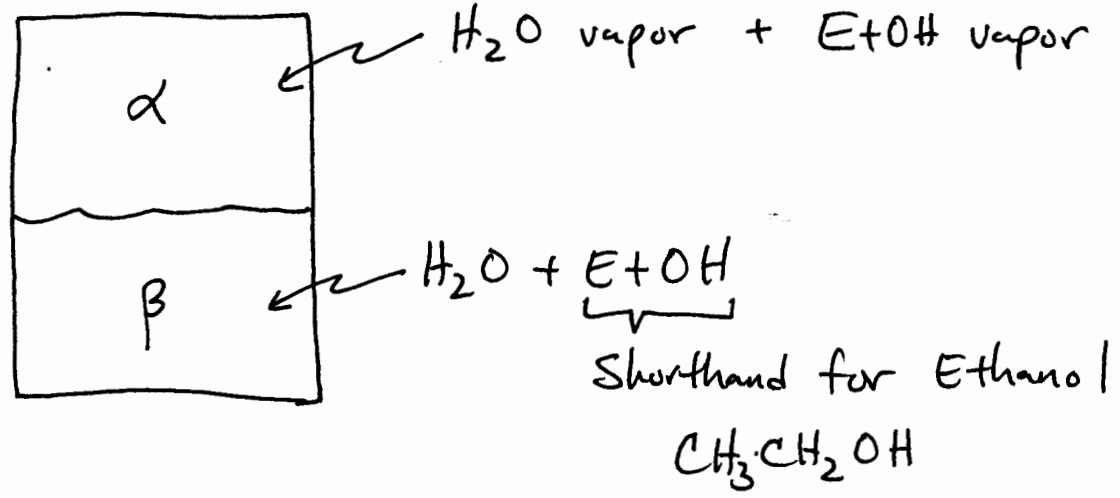 H₂O vapor + EtOH vapor
α
H₂O + EtOH
β
Shorthand for Ethanol
CH₃·CH₂OH